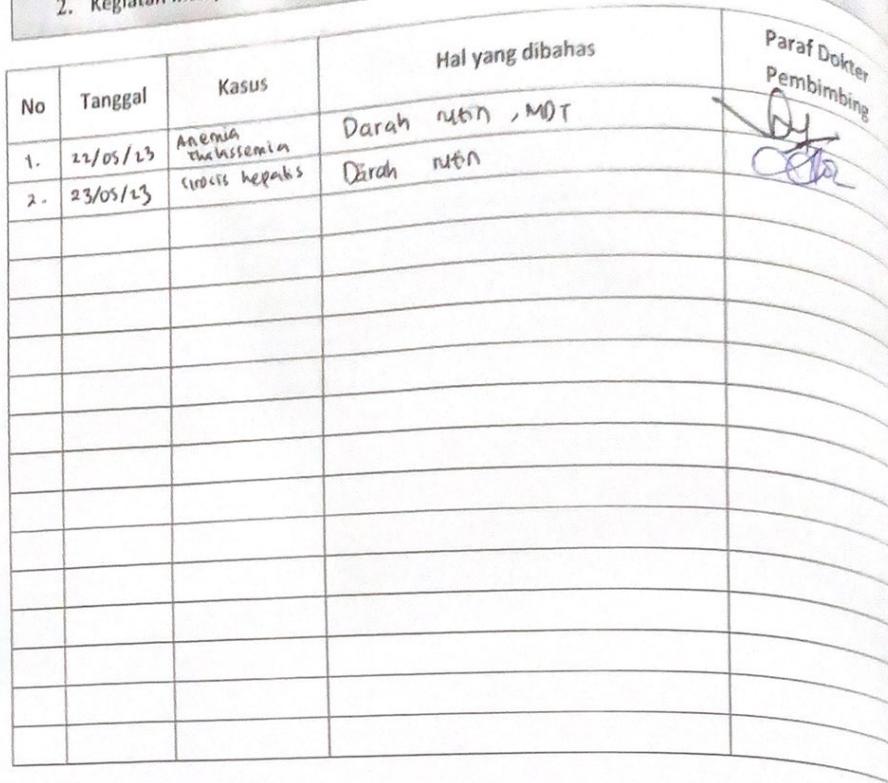 2. Kegiatan
No Tanggal Kasus Hal yang dibahas Paraf Dokter
Pembimbing
1. 22/05/23 Anemia
thalassemia Darah rutin , MDT
2. 23/05/23 Sirocis hepatis Darah rutin